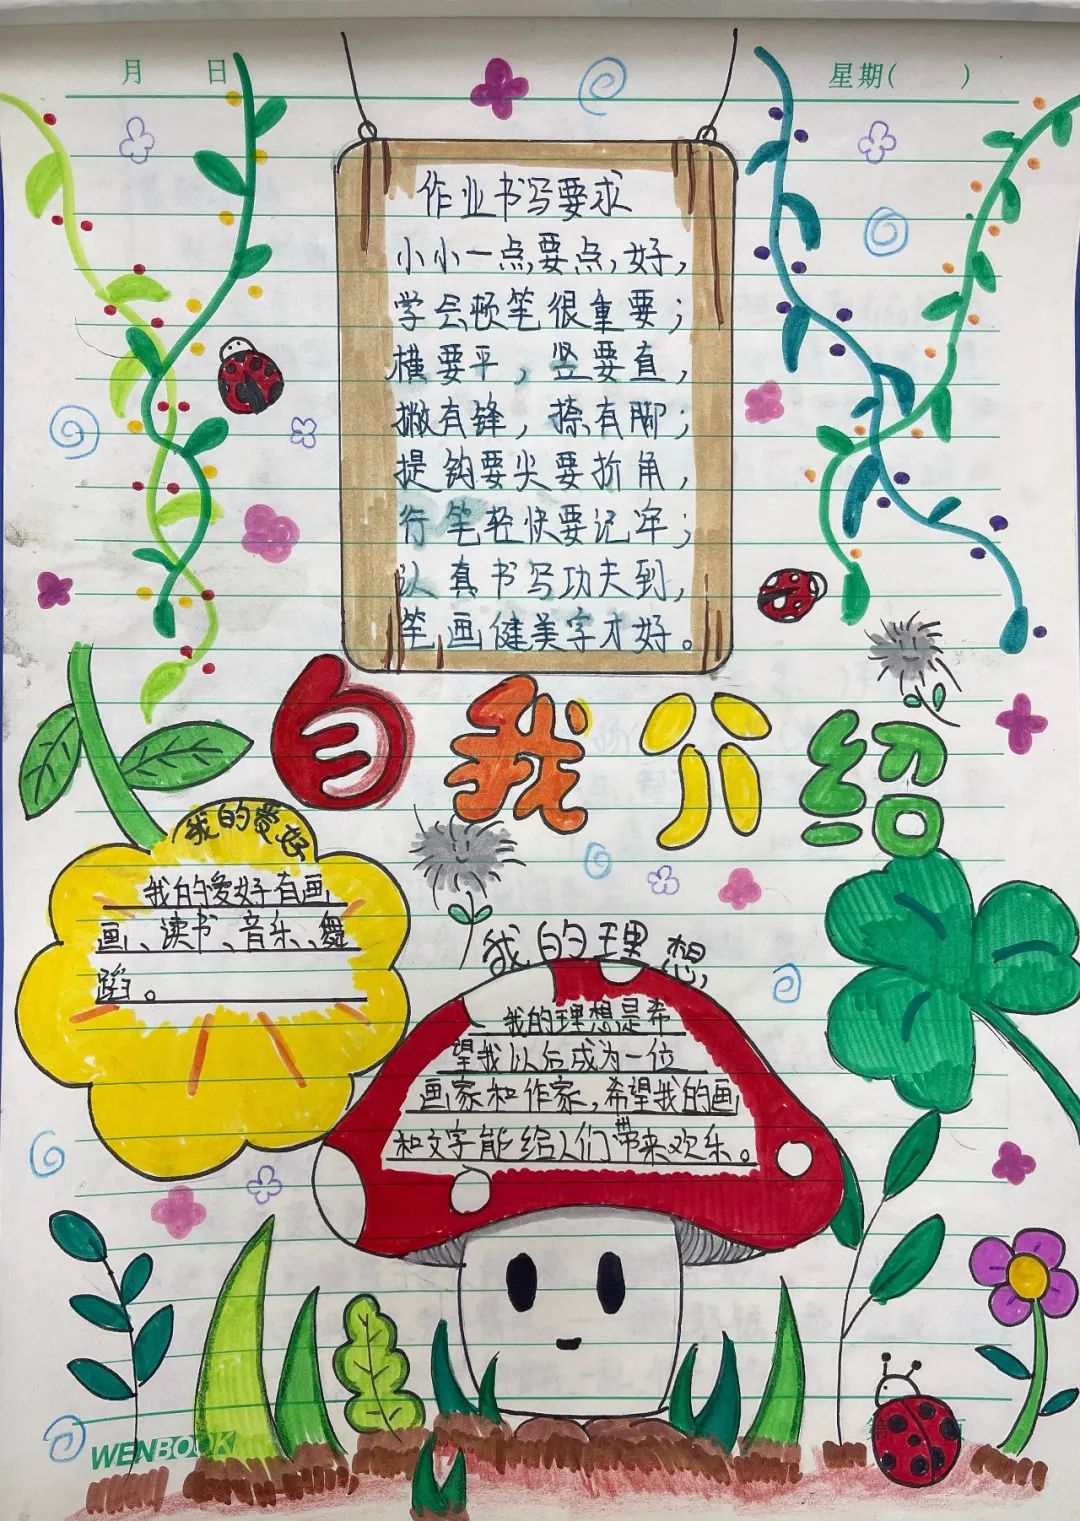 月 日 星期( )
作业书写要求
小小一点,要点,好,
学会顿笔很重要;
横要平,竖要直,
撇有锋,捺有脚;
提钩要尖要折角,
行笔轻快要记牢;
认真书写功夫到,
笔画健美字才好。
自我介绍
我的爱好
我的爱好有画
画、读书、音乐、舞
蹈。
我的理想,
我的理想是希
望我以后成为一位
画家和作家,希望我的画
和文字能给人们带来欢乐。
WENBOOK